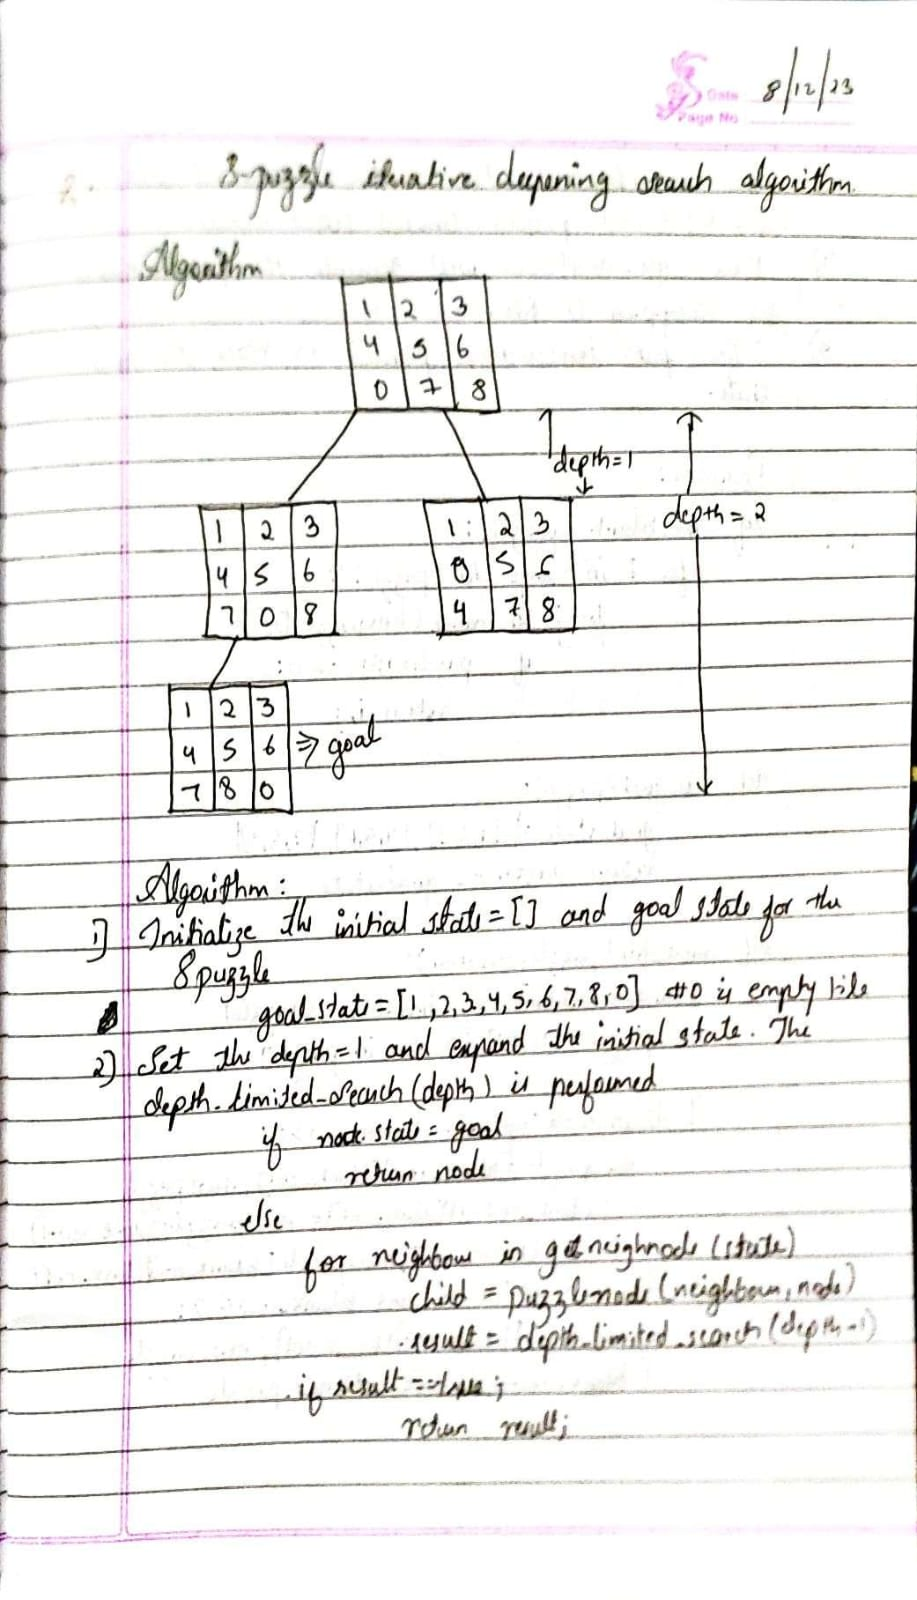 Date 8/12/23
Page No
8-puzzle iterative deepening search algorithm
Algorithm
1 2 3
4 5 6
0 7 8
depth=1
depth = 2
1 2 3
4 5 6
7 0 8
1 2 3
0 5 6
4 7 8
1 2 3
4 5 6 ⇒ goal
7 8 0
Algorithm :
1] Initialize the initial state = [] and goal state for the
8 puzzle
goal_state = [1,2,3,4,5,6,7,8,0] #0 is empty tile
2] Set the depth=1 and expand the initial state. The
depth-limited-search(depth) is performed
if node.state = goal
return node
else
for neighbour in get neighnode (state)
child = puzzlenode (neighbour, node)
result = depth-limited-search(depth-1)
if result == true ;
return result;